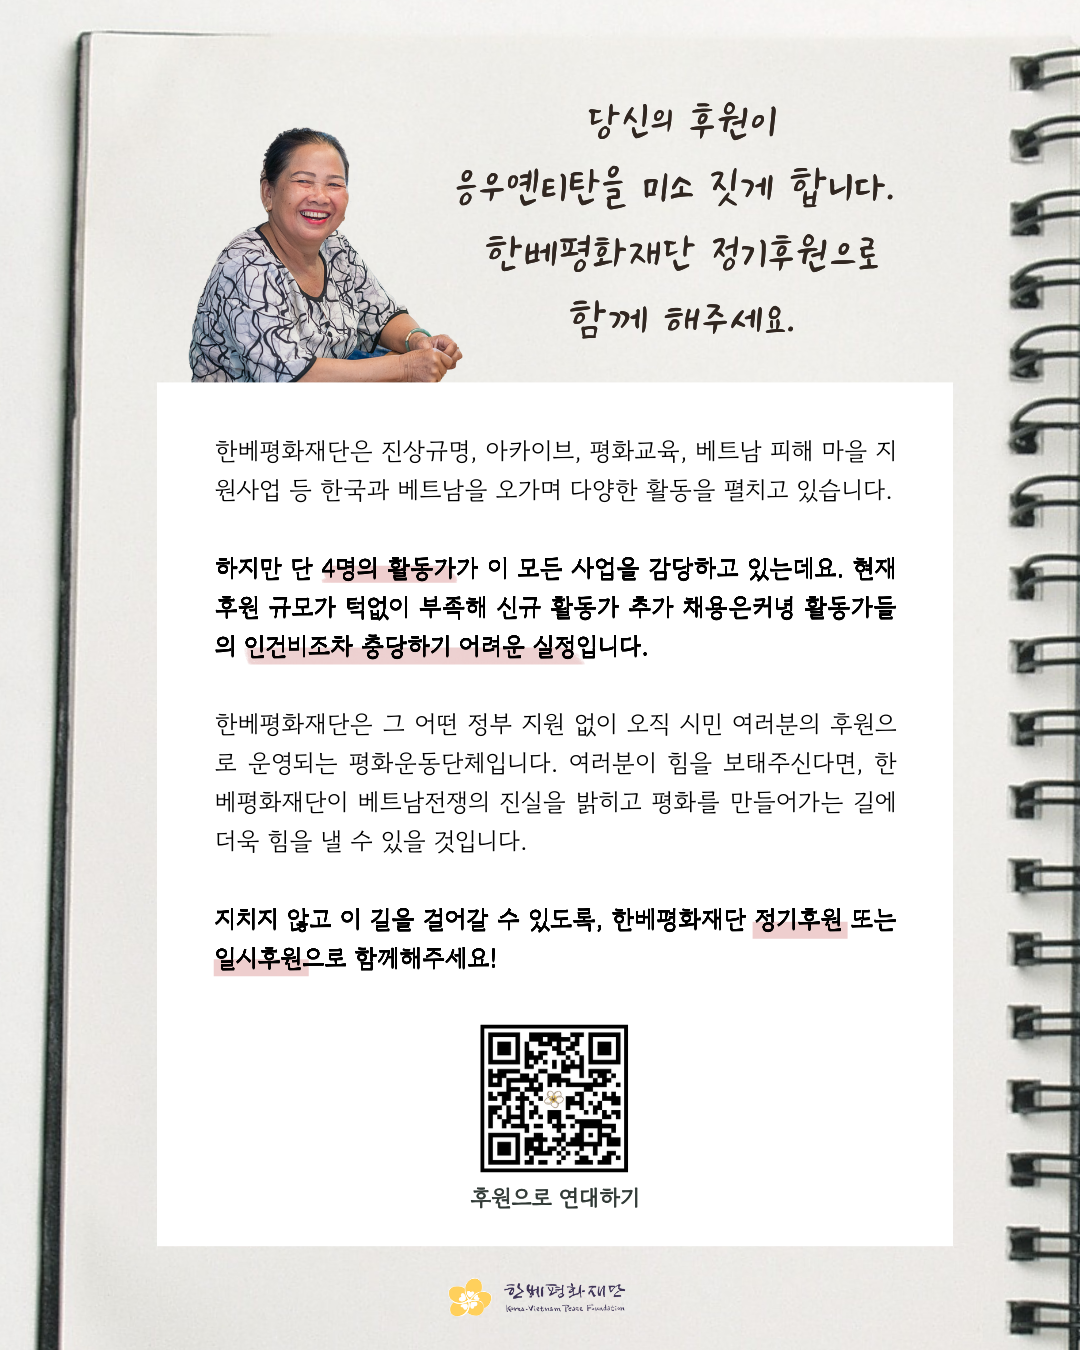 당신의 후원이
응우옌티탄을 미소 짓게 합니다.
한베평화재단 정기후원으로
함께 해주세요.
한베평화재단은 진상규명, 아카이브, 평화교육, 베트남 피해 마을 지
원사업 등 한국과 베트남을 오가며 다양한 활동을 펼치고 있습니다.
하지만 단 4명의 활동가가 이 모든 사업을 감당하고 있는데요. 현재
후원 규모가 턱없이 부족해 신규 활동가 추가 채용은커녕 활동가들
의 인건비조차 충당하기 어려운 실정입니다.
한베평화재단은 그 어떤 정부 지원 없이 오직 시민 여러분의 후원으
로 운영되는 평화운동단체입니다. 여러분이 힘을 보태주신다면, 한
베평화재단이 베트남전쟁의 진실을 밝히고 평화를 만들어가는 길에
더욱 힘을 낼 수 있을 것입니다.
지치지 않고 이 길을 걸어갈 수 있도록, 한베평화재단 정기후원 또는
일시후원으로 함께해주세요!
후원으로 연대하기
한베평화재단
Korea-Vietnam Peace Foundation